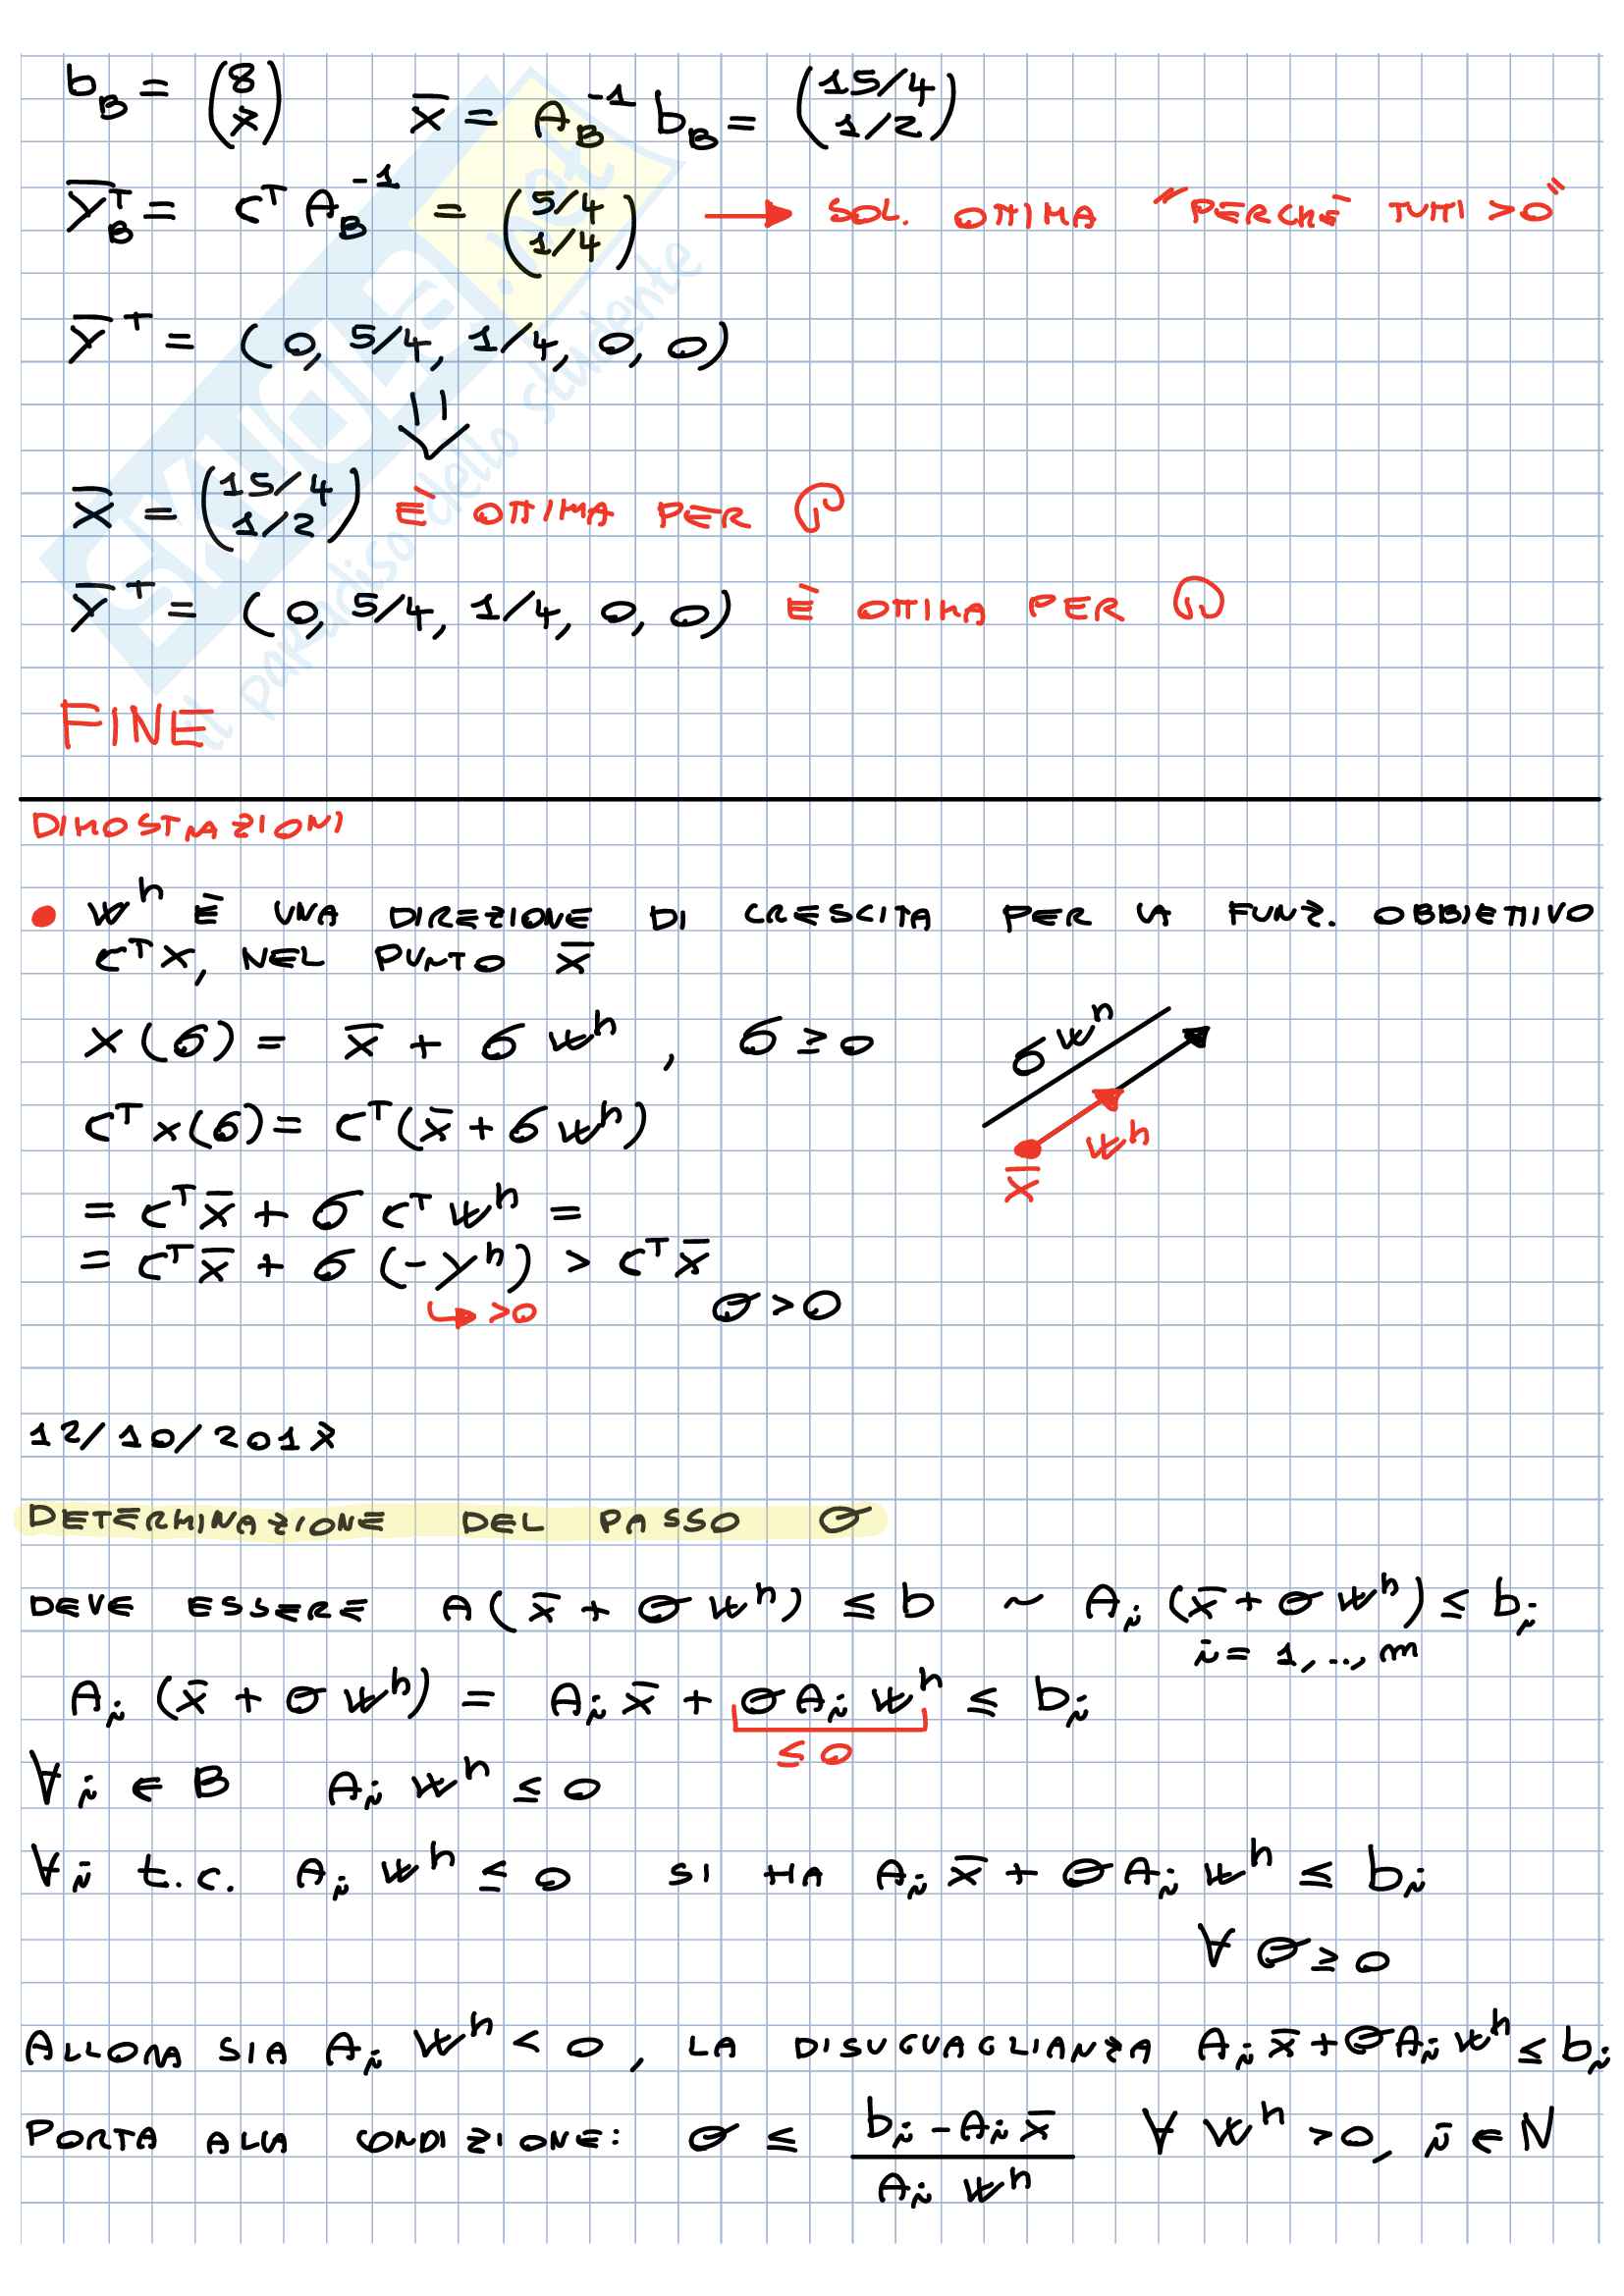 b_B = (8 7)   x̄ = A_B^-1 b_B = (15/4 1/2)
ȳ_B^T = c^T A_B^-1 = (5/4 1/4) → SOL. OTTIMA "PERCHÉ TUTTI >0"
ȳ^T = (0, 5/4, 1/4, 0, 0)
⇓
x̄ = (15/4 1/2) È OTTIMA PER P
ȳ^T = (0, 5/4, 1/4, 0, 0) È OTTIMA PER D
FINE
DIMOSTRAZIONI
• W^h È UNA DIREZIONE DI CRESCITA PER LA FUNZ. OBBIETIVO
c^T x, NEL PUNTO x̄
x(σ) = x̄ + σ W^h , σ ≥ 0
σ W^h
c^T x(σ) = c^T(x̄ + σ W^h)
W^h
x̄
= c^T x̄ + σ c^T W^h =
= c^T x̄ + σ (-y^h) > c^T x̄
↳ >0   σ > 0
12/10/2017
DETERMINAZIONE DEL PASSO σ
DEVE ESSERE A(x̄ + σ W^h) ≤ b ~ A_i (x̄ + σ W^h) ≤ b_i
i = 1, .., m
A_i (x̄ + σ W^h) = A_i x̄ + σ A_i W^h ≤ b_i
≤ 0
∀ i ∈ B   A_i W^h ≤ 0
∀ i t.c. A_i W^h ≤ 0 SI HA A_i x̄ + σ A_i W^h ≤ b_i
∀ σ ≥ 0
ALLORA SIA A_i W^h < 0, LA DISUGUAGLIANZA A_i x̄ + σ A_i W^h ≤ b_i
PORTA ALLA CONDIZIONE: σ ≤ (b_i - A_i x̄) / (A_i W^h)   ∀ W^h > 0, i ∈ N
SKUOLA.net
il paradiso dello studente